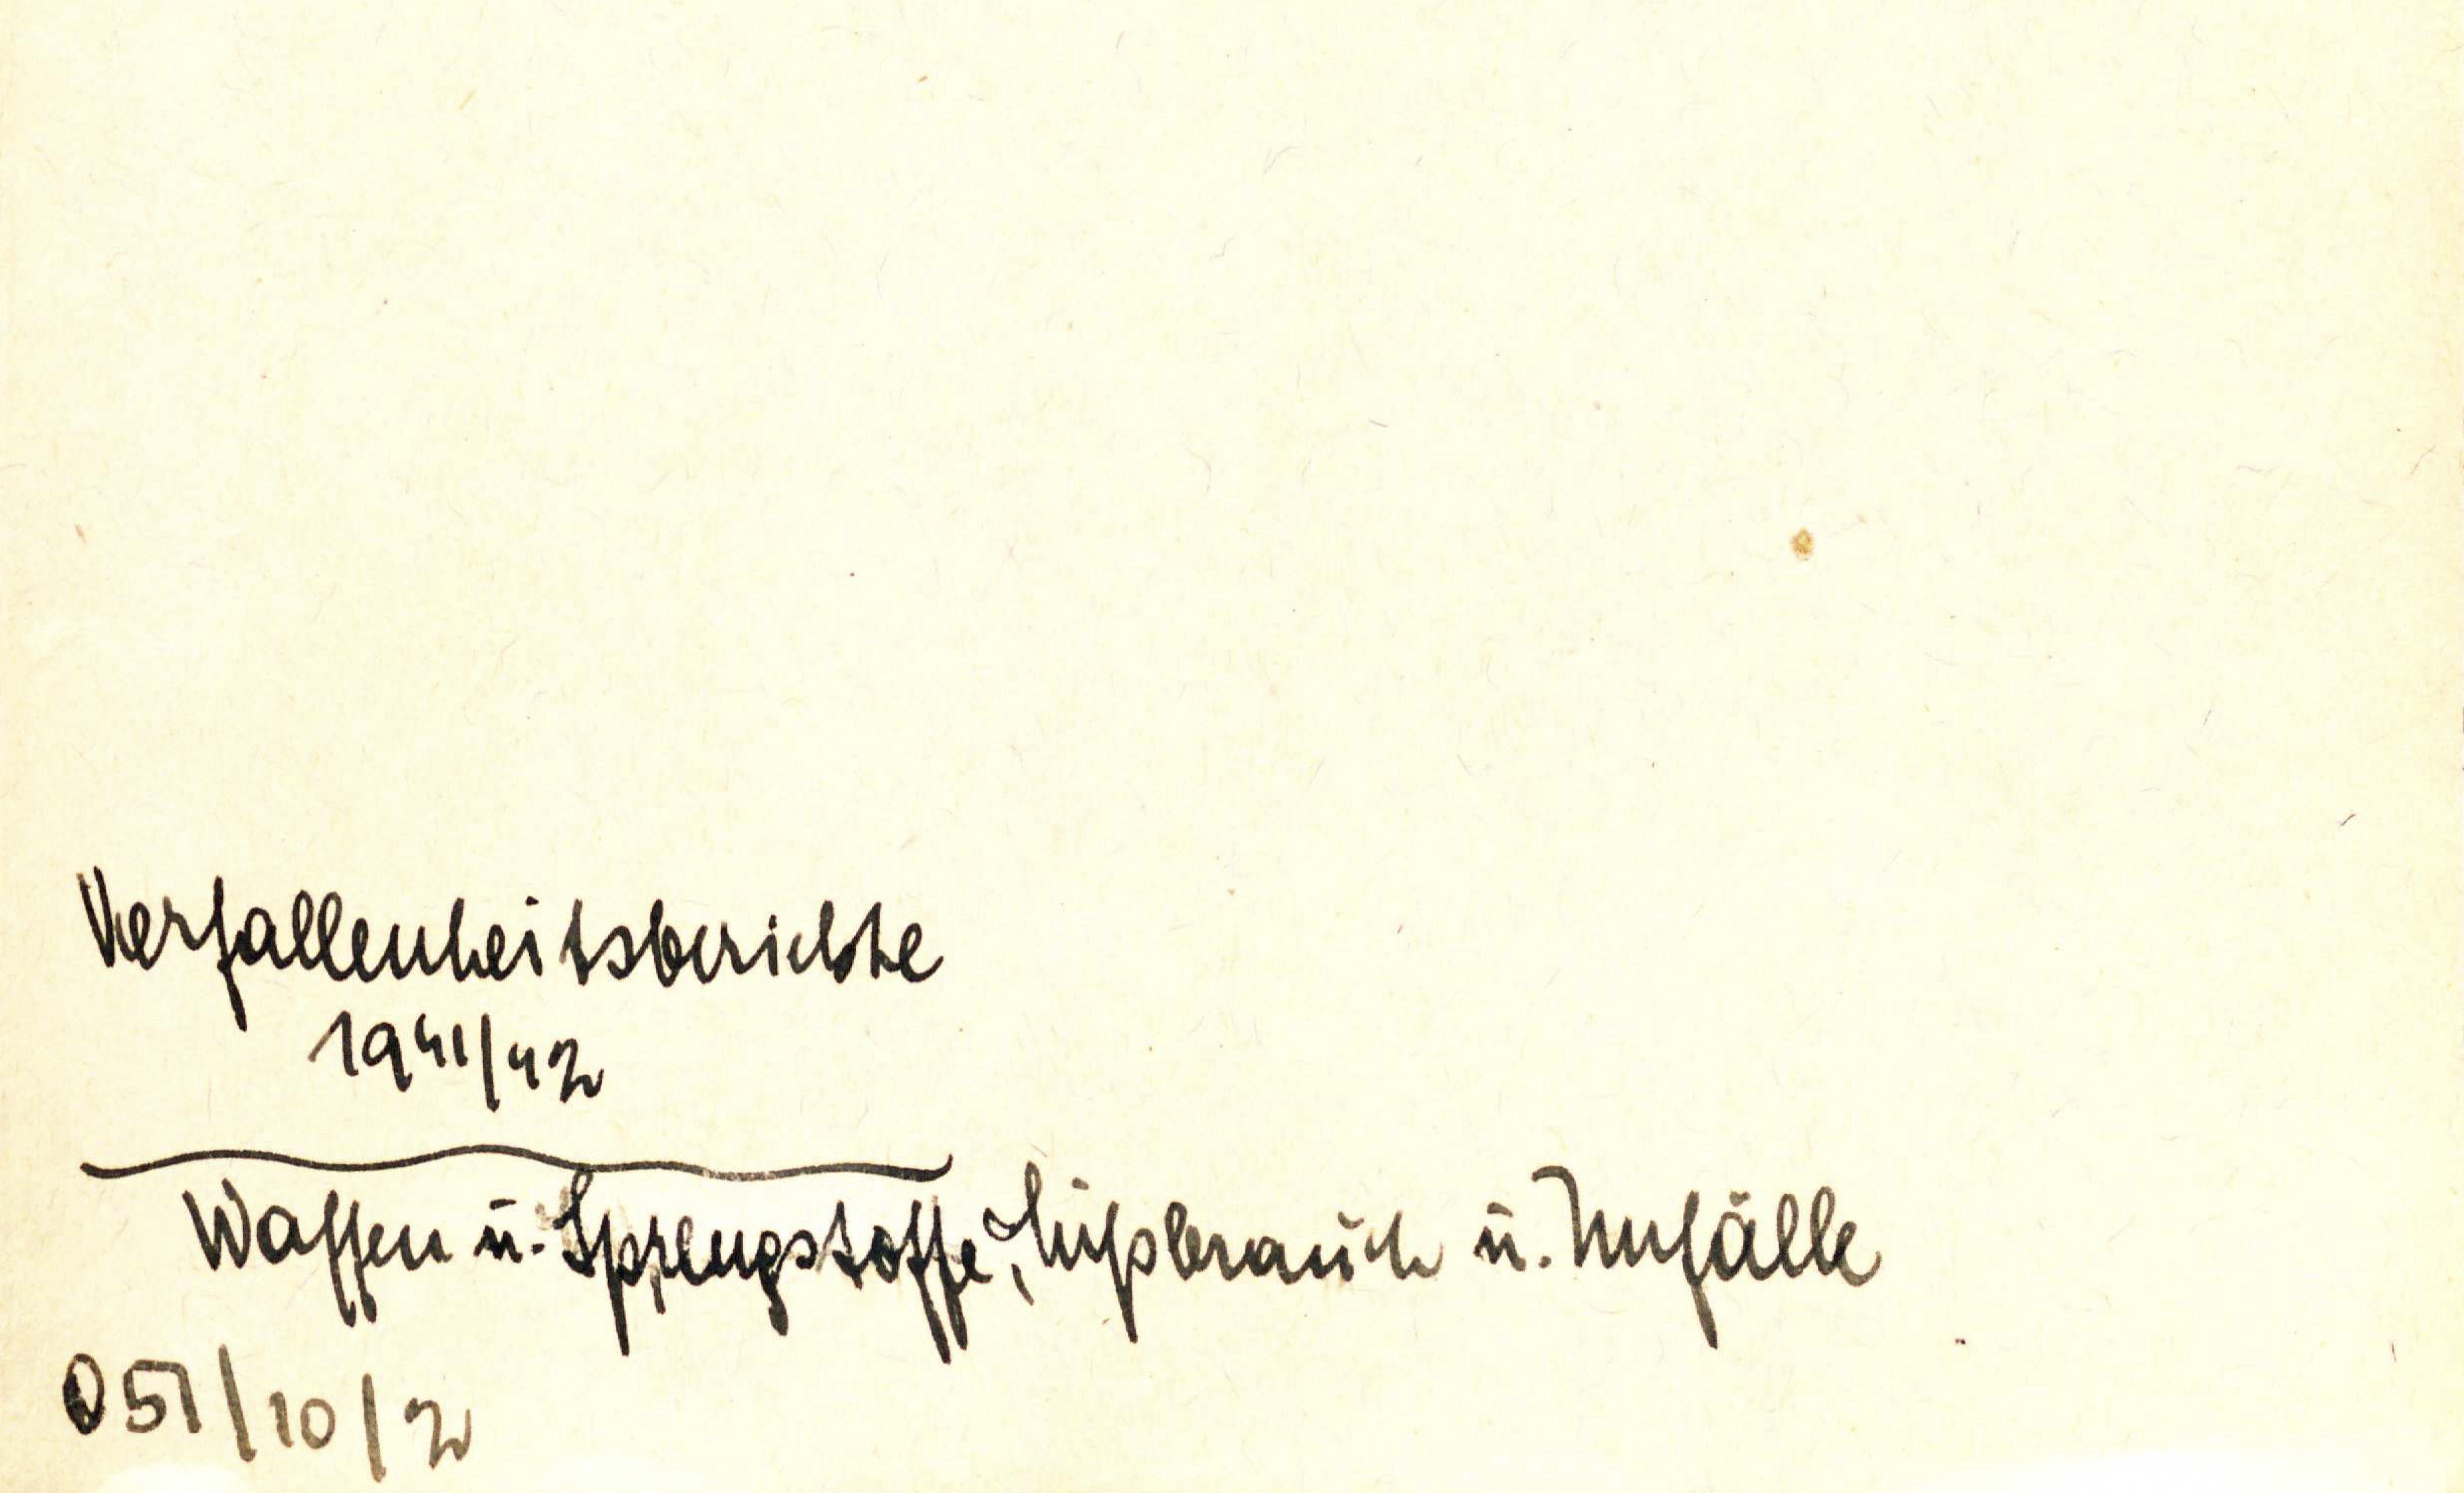 Verfallenheitsberichte
1941/42
Waffen u. Sprengstoffe, Mißbrauch u. Unfälle
051/10/2